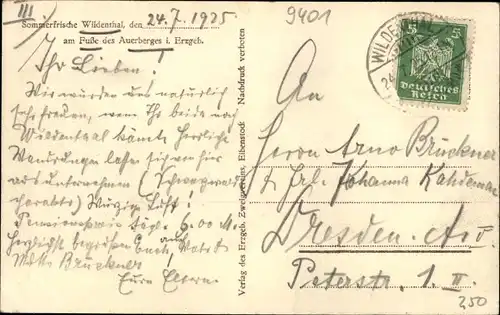 III
9401
Sommerfrische Wildenthal, den 24.7.1925
am Fuße des Auerberges i. Erzgeb.
Ihr Lieben!
Wir würden uns natürlich
sehr freuen, wenn Ihr beide nach
Wildenthal kämt. Herrliche
Wanderungen lassen sich von hier
aus unternehmen (Schwarzwald
Würzige Luft!
Pensionspreis tägl. 6.00 M.
Herzlichst begrüßen Euch, auch
Brückner
Eure Eltern.
Verlag des Erzgeb. Zweigvereins, Eibenstock Nachdruck verboten
WILDENTHAL
24
5 5
Deutsches
Reich
An
Herrn Arno Brückner
& Frl. Johanna
Dresden-
Peterstr. 1. II.
250